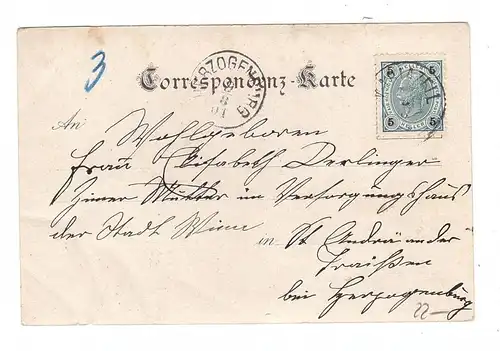 3
Correspondenz-Karte
HERZOGENBURG
8
01
5 5
5 5
An
Wohlgeboren
Frau Elisabeth Derlinger
Zimer Mutter im Versorgungshaus
der Stadt Wien in St Andrä an der
Traißen
bei Herzogenburg
22